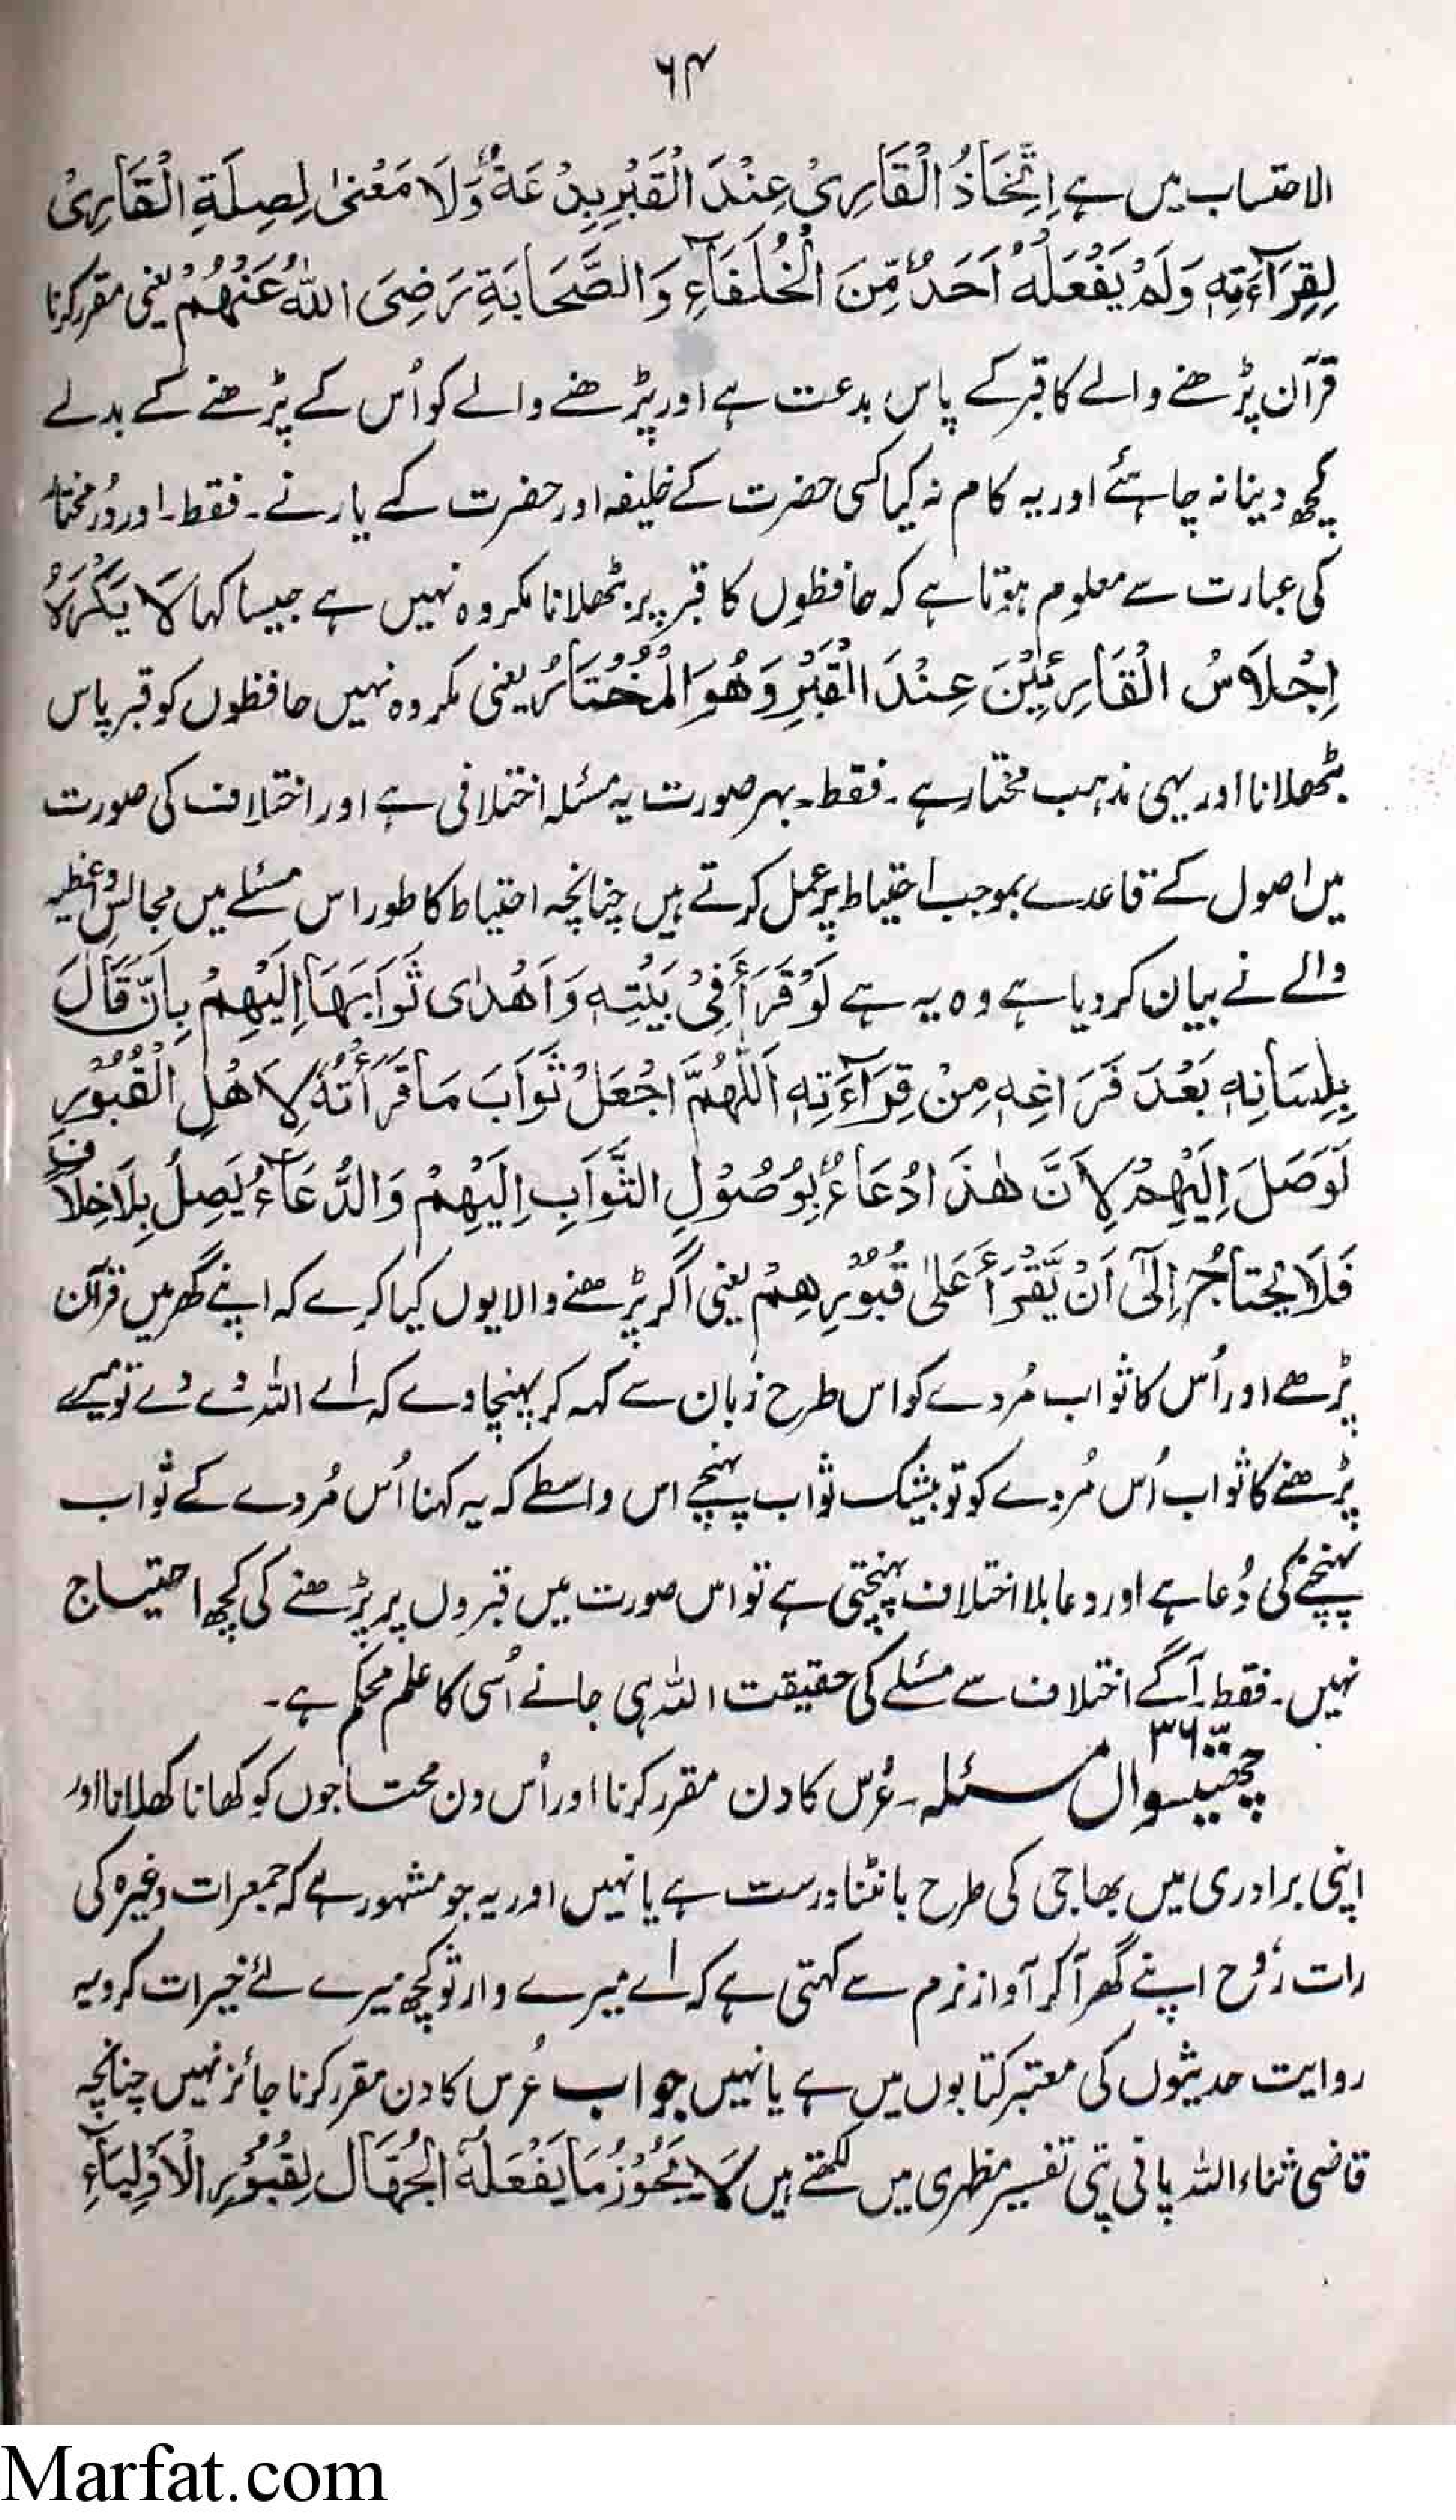 ۶۴
الاحتساب میں ہے اِتِّخَاذُ الْقَارِیْ عِنْدَ الْقَبْرِ بِدْعَةٌ وَّلَا مَعْنٰى لِصِلَةِ الْقَارِیْ
لِقِرَآءَتِهٖ وَلَمْ يَفْعَلْهُ اَحَدٌ مِّنَ الْخُلَفَآءِ وَالصَّحَابَةِ رَضِیَ اللّٰهُ عَنْهُمْ یعنی مقرر کرنا
قرآن پڑھنے والے کا قبر کے پاس بدعت ہے اور پڑھنے والے کو اُس کے پڑھنے کے بدلے
کچھ دینا نہ چاہئے اور یہ کام نہ کیا کسی حضرت کے خلیفہ اور حضرت کے یار نے۔ فقط۔ اور دُرمختار
کی عبارت سے معلوم ہوتا ہے کہ حافظوں کا قبر پر بٹھلانا مکروہ نہیں ہے جیسا کہا لَا يَكْرَهُ
اِجْلَاسُ الْقَارِئِيْنَ عِنْدَ الْقَبْرِ وَهُوَ الْمُخْتَارُ یعنی مکروہ نہیں حافظوں کو قبر پاس
بٹھلانا اور یہی مذہب مختار ہے۔ فقط۔ بہر صورت یہ مسئلہ اختلافی ہے اور اختلاف کی صورت
میں اصول کے قاعدے بموجب احتیاط پر عمل کرتے ہیں چنانچہ احتیاط کا طور اس مسئلے میں مجالس وعظیہ
والے نے بیان کر دیا ہے وہ یہ ہے لَوْ قَرَأَ فِیْ بَيْتِهٖ وَاَهْدٰى ثَوَابَهَا اِلَيْهِمْ بِاَنْ قَالَ
بِلِسَانِهٖ بَعْدَ فَرَاغِهٖ مِنْ قِرَآءَتِهٖ اَللّٰهُمَّ اجْعَلْ ثَوَابَ مَا قَرَأْتُهٗ لِاَهْلِ الْقُبُوْرِ
لَوَصَلَ اِلَيْهِمْ لِاَنَّ هٰذَا دُعَاءٌ بِوُصُوْلِ الثَّوَابِ اِلَيْهِمْ وَالدُّعَآءُ يَصِلُ بِلَا خِلَافٍ
فَلَا يَحْتَاجُ اِلٰٓى اَنْ يَّقْرَأَ عَلٰى قُبُوْرِهِمْ یعنی اگر پڑھنے والا یوں کیا کرے کہ اپنے گھر میں قرآن
پڑھے اور اُس کا ثواب مُردے کو اس طرح زبان سے کہہ کر پہنچا دے کہ اے اللہ دے دے تو میرے
پڑھنے کا ثواب اُس مُردے کو تو بیشک ثواب پہنچے اس واسطے کہ یہ کہنا اُس مُردے کے ثواب
پہنچنے کی دُعا ہے اور دعا بلا اختلاف پہنچتی ہے تو اس صورت میں قبروں پر پڑھنے کی کچھ احتیاج
نہیں۔ فقط۔ آگے اختلاف سے مسئلے کی حقیقت اللہ ہی جانے اُسی کا علم محکم ہے۔
۳۶
چھتیسواں مسئلہ۔ عُرس کا دن مقرر کرنا اور اُس دن محتاجوں کو کھانا کھلانا اور
اپنی برادری میں بھاجی کی طرح بانٹنا درست ہے یا نہیں اور یہ جو مشہور ہے کہ جمعرات وغیرہ کی
رات رُوح اپنے گھر آ کر آواز نرم سے کہتی ہے کہ اے میرے وارثو کچھ میرے لئے خیرات کرو یہ
روایت حدیثوں کی معتبر کتابوں میں ہے یا نہیں جواب عُرس کا دن مقرر کرنا جائز نہیں چنانچہ
قاضی ثناء اللہ پانی پتی تفسیر مظہری میں لکھتے ہیں لَا يَجُوْزُ مَا يَفْعَلُهُ الْجُهَّالُ لِقُبُوْرِ الْاَوْلِيَآءِ
Marfat.com